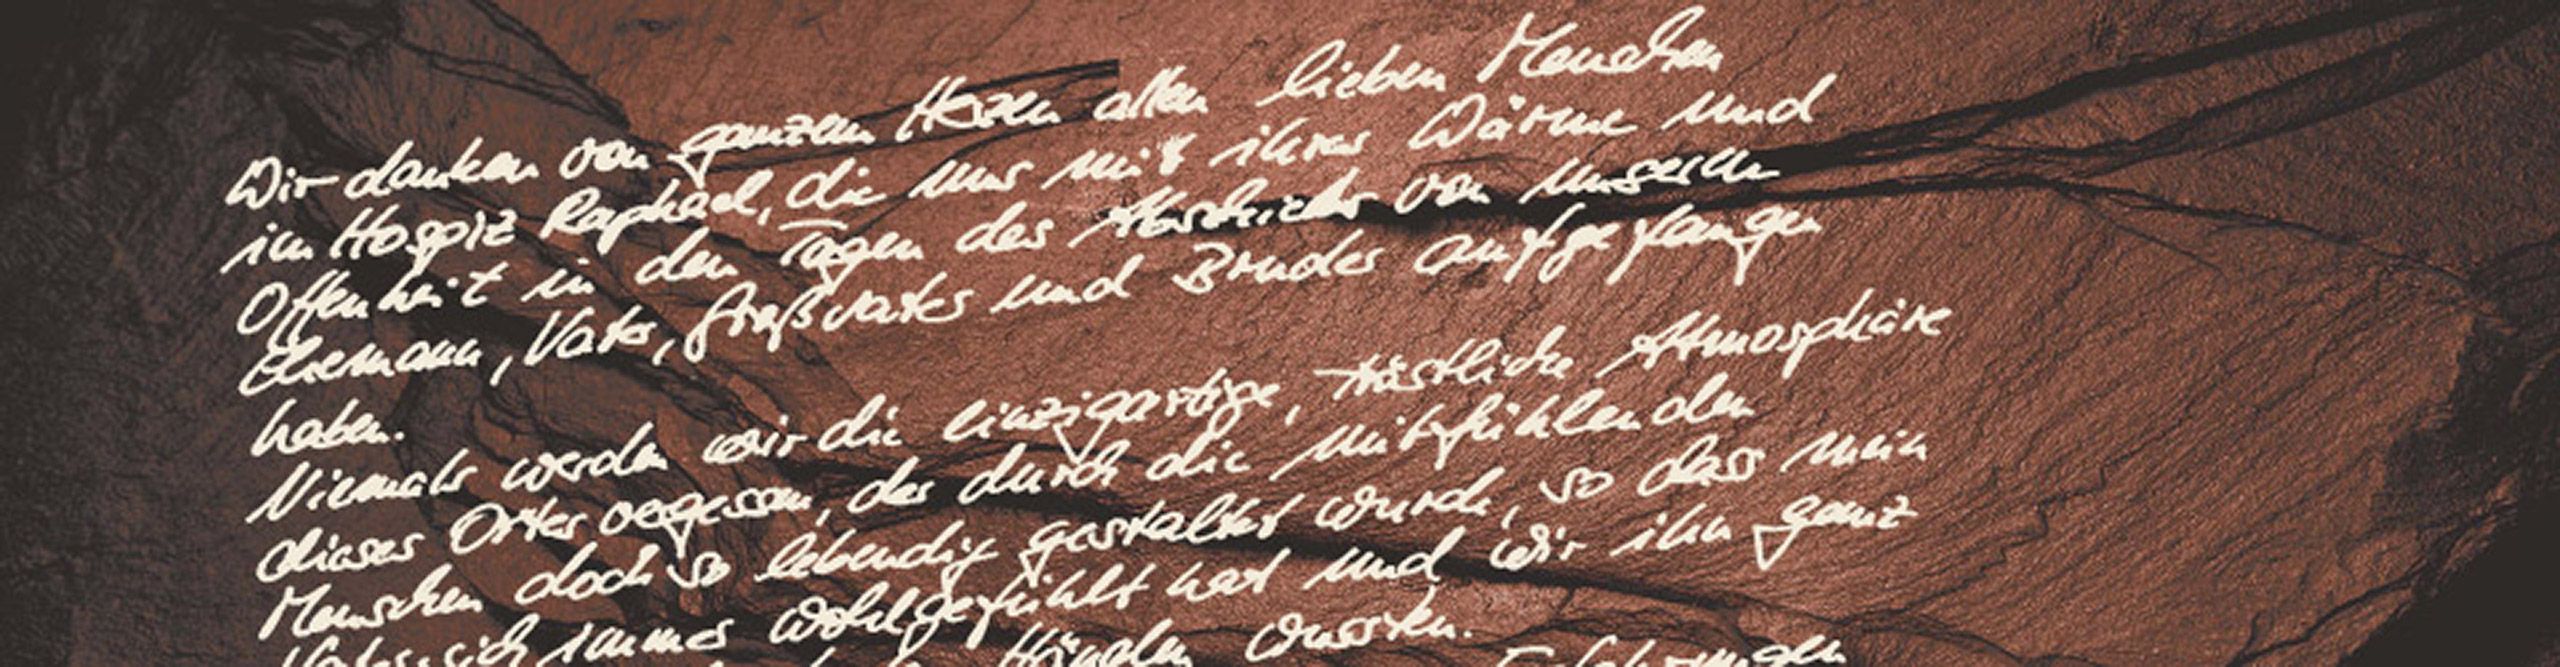 Wir danken von ganzem Herzen allen lieben Menschen
im Hospiz Raphael, die uns mit ihrer Wärme und
Offenheit in den Tagen des Abschieds von unserem
Ehemann, Vater, Großvater und Bruder aufgefangen
haben.
Niemals werden wir die einzigartige, tröstliche Atmosphäre
dieses Ortes vergessen, der durch die mitfühlenden
Menschen doch so lebendig gestaltet wurde, so dass mein
Vater sich immer wohlgefühlt hat und wir ihn ganz
Händen wussten.
Erfahrungen